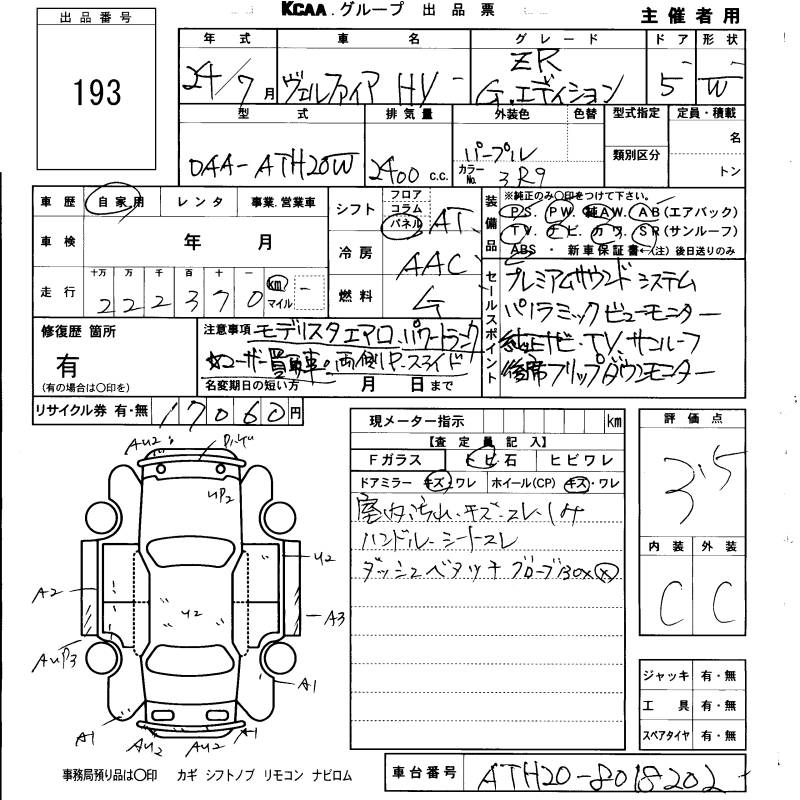 KCAA.グループ 出品票
主催者用
出品番号
193
年式 車名 グレード ドア 形状
24/7月 ヴェルファイア HV ZR G.エディション 5 W
型式 排気量 外装色 色替 型式指定 定員・積載
DAA-ATH20W 2400 c.c. パープル カラーNo. 3R9 類別区分 名 トン
車歴 自家用 レンタ 事業.営業車
車検 年 月
走行 十万 万 千 百 十 一 km マイル
222370
シフト フロア コラム パネル AT
冷房 AAC
燃料 G
装備品 ※純正のみ○印をつけて下さい。
PS. PW. 純AW. AB(エアバック)
TV. ナビ. カワ. SR(サンルーフ)
ABS ・ 新車保証書←(注)後日送りのみ
セールスポイント
プレミアムサウンドシステム
パノラミックビューモニター
純正ナビ・TV サンルーフ
後席フリップダウンモニター
修復歴 箇所
有
(有の場合は○印を)
注意事項 モデリスタエアロ.パワートランク
☆ユーザー買取車。両側P.スライド
名変期日の短い方 月 日まで
リサイクル券 有・無 17060円
現メーター指示 km
【査定員記入】
Fガラス トビ石 ヒビワレ
ドアミラー キズ・ワレ ホイール(CP) キズ・ワレ
室内汚れ.キズ・スレ・シミ
ハンドル・シートスレ
ダッシュベタツキ グローブBOX
評価点
3.5
内装 外装
C C
ジャッキ 有・無
工具 有・無
スペアタイヤ 有・無
AU2
UP2
U2
A2
U2
A3
AUP3
A1
A1
AU2
AU2
A1
事務局預り品は○印 カギ シフトノブ リモコン ナビロム
車台番号 ATH20-8018202